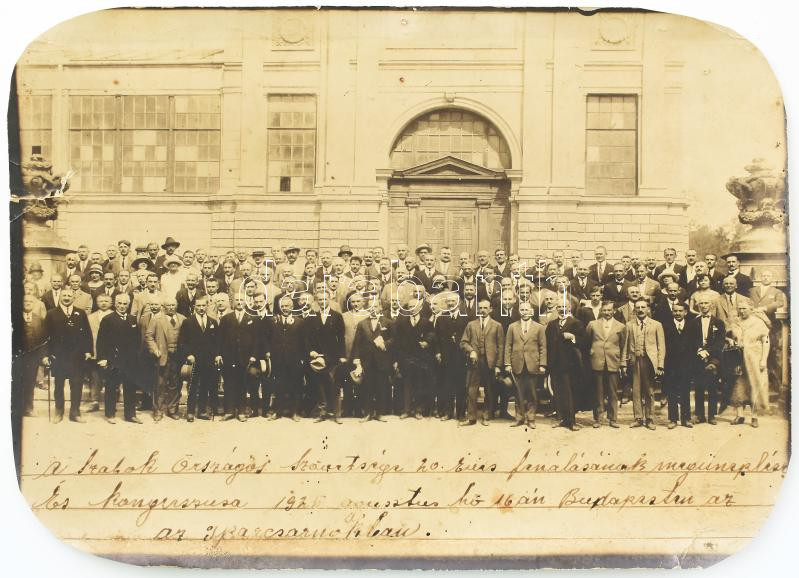 darabanth.com
A Szabók Országos Szövetsége 20. Éves fenálásának megünneplése
És kongresszusa 1926 agusztus hó 16 án Budapesten az
az Iparcsarnokban.